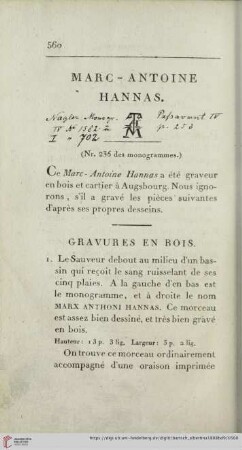 560
MARC-ANTOINE
HANNAS.
Nagler Monogr.
IV Nº 1582. 2
I " 702
Passavant IV
p. 250
(Nr. 236 des monogrammes.)
Ce Marc-Antoine Hannas a été graveur
en bois et cartier à Augsbourg. Nous igno-
rons, s'il a gravé les pièces suivantes
d'après ses propres desseins.
GRAVURES EN BOIS.
1. Le Sauveur debout au milieu d'un bas-
sin qui reçoit le sang ruisselant de ses
cinq plaies. A la gauche d'en bas est
le monogramme, et à droite le nom
MARX ANTHONI HANNAS. Ce morceau
est assez bien dessiné, et très bien gravé
en bois.
Hauteur: 13 p. 3 lig. Largeur: 5 p. 2 lig.
On trouve ce morceau ordinairement
accompagné d'une oraison imprimée